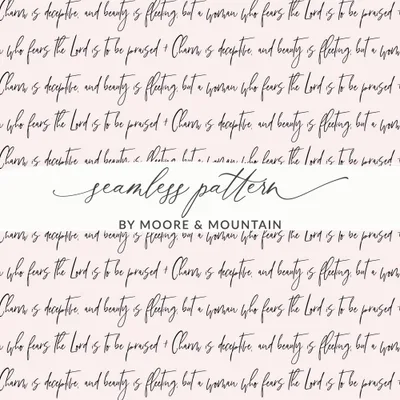 Charm is deceptive, and beauty is fleeting, but a woman who fears
who fears the Lord is to be praised + Charm is deceptive, and beauty is fleeting, but a wom
Charm is deceptive, and beauty is fleeting, but a woman who fears the Lord is to be praised
who fears the Lord is to be praised + Charm is deceptive, and beauty is fleeting, but a wom
Charm is deceptive, and beauty is fleeting, but a woman who fears the Lord is to be praised
seamless pattern
BY MOORE & MOUNTAIN
Charm is deceptive, and beauty is fleeting, but a woman who fears the Lord is to be praised
who fears the Lord is to be praised + Charm is deceptive, and beauty is fleeting, but a wom
Charm is deceptive, and beauty is fleeting, but a woman who fears the Lord is to be praised
who fears the Lord is to be praised + Charm is deceptive, and beauty is fleeting, but a wom
Charm is deceptive, and beauty is fleeting, but a woman who fears the Lord is to be praised